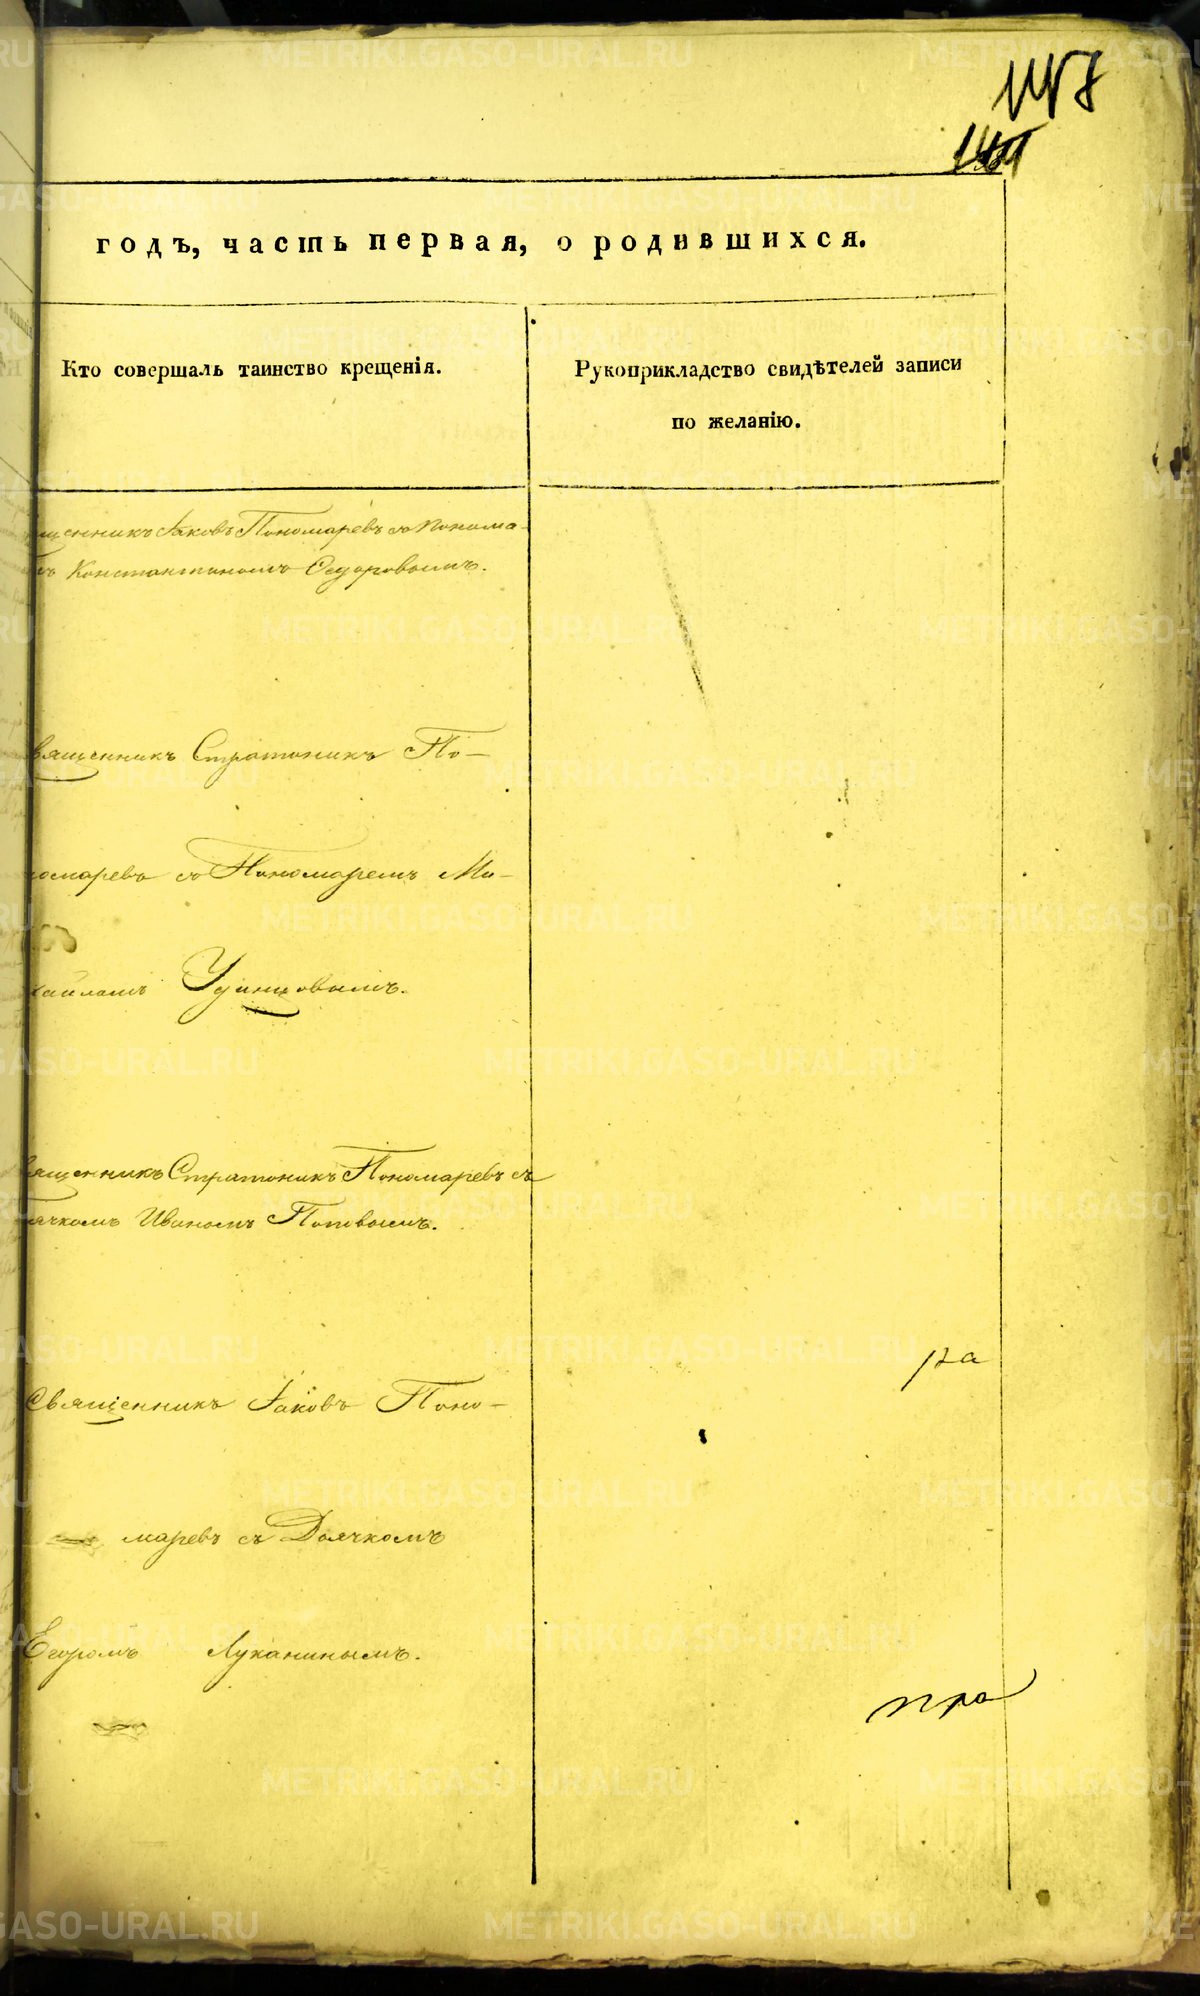 годъ, часть первая, о родившихся.
Кто совершалъ таинство крещенія.
Рукоприкладство свидѣтелей записи
по желанію.
щенникъ Іаковъ Пономаревъ съ Понома-
Константиномъ Ѳедоровымъ.
вященникъ Стратоникъ По-
номаревъ съ Пономаремъ Ми-
хайломъ Удинцовымъ.
вященникъ Стратоникъ Пономаревъ съ
ячкомъ Иваномъ Поповымъ.
Священникъ Іаковъ Поно-
маревъ съ Дьячкомъ
Егоромъ Луканинымъ.
METRIKI.GASO-URAL.RU